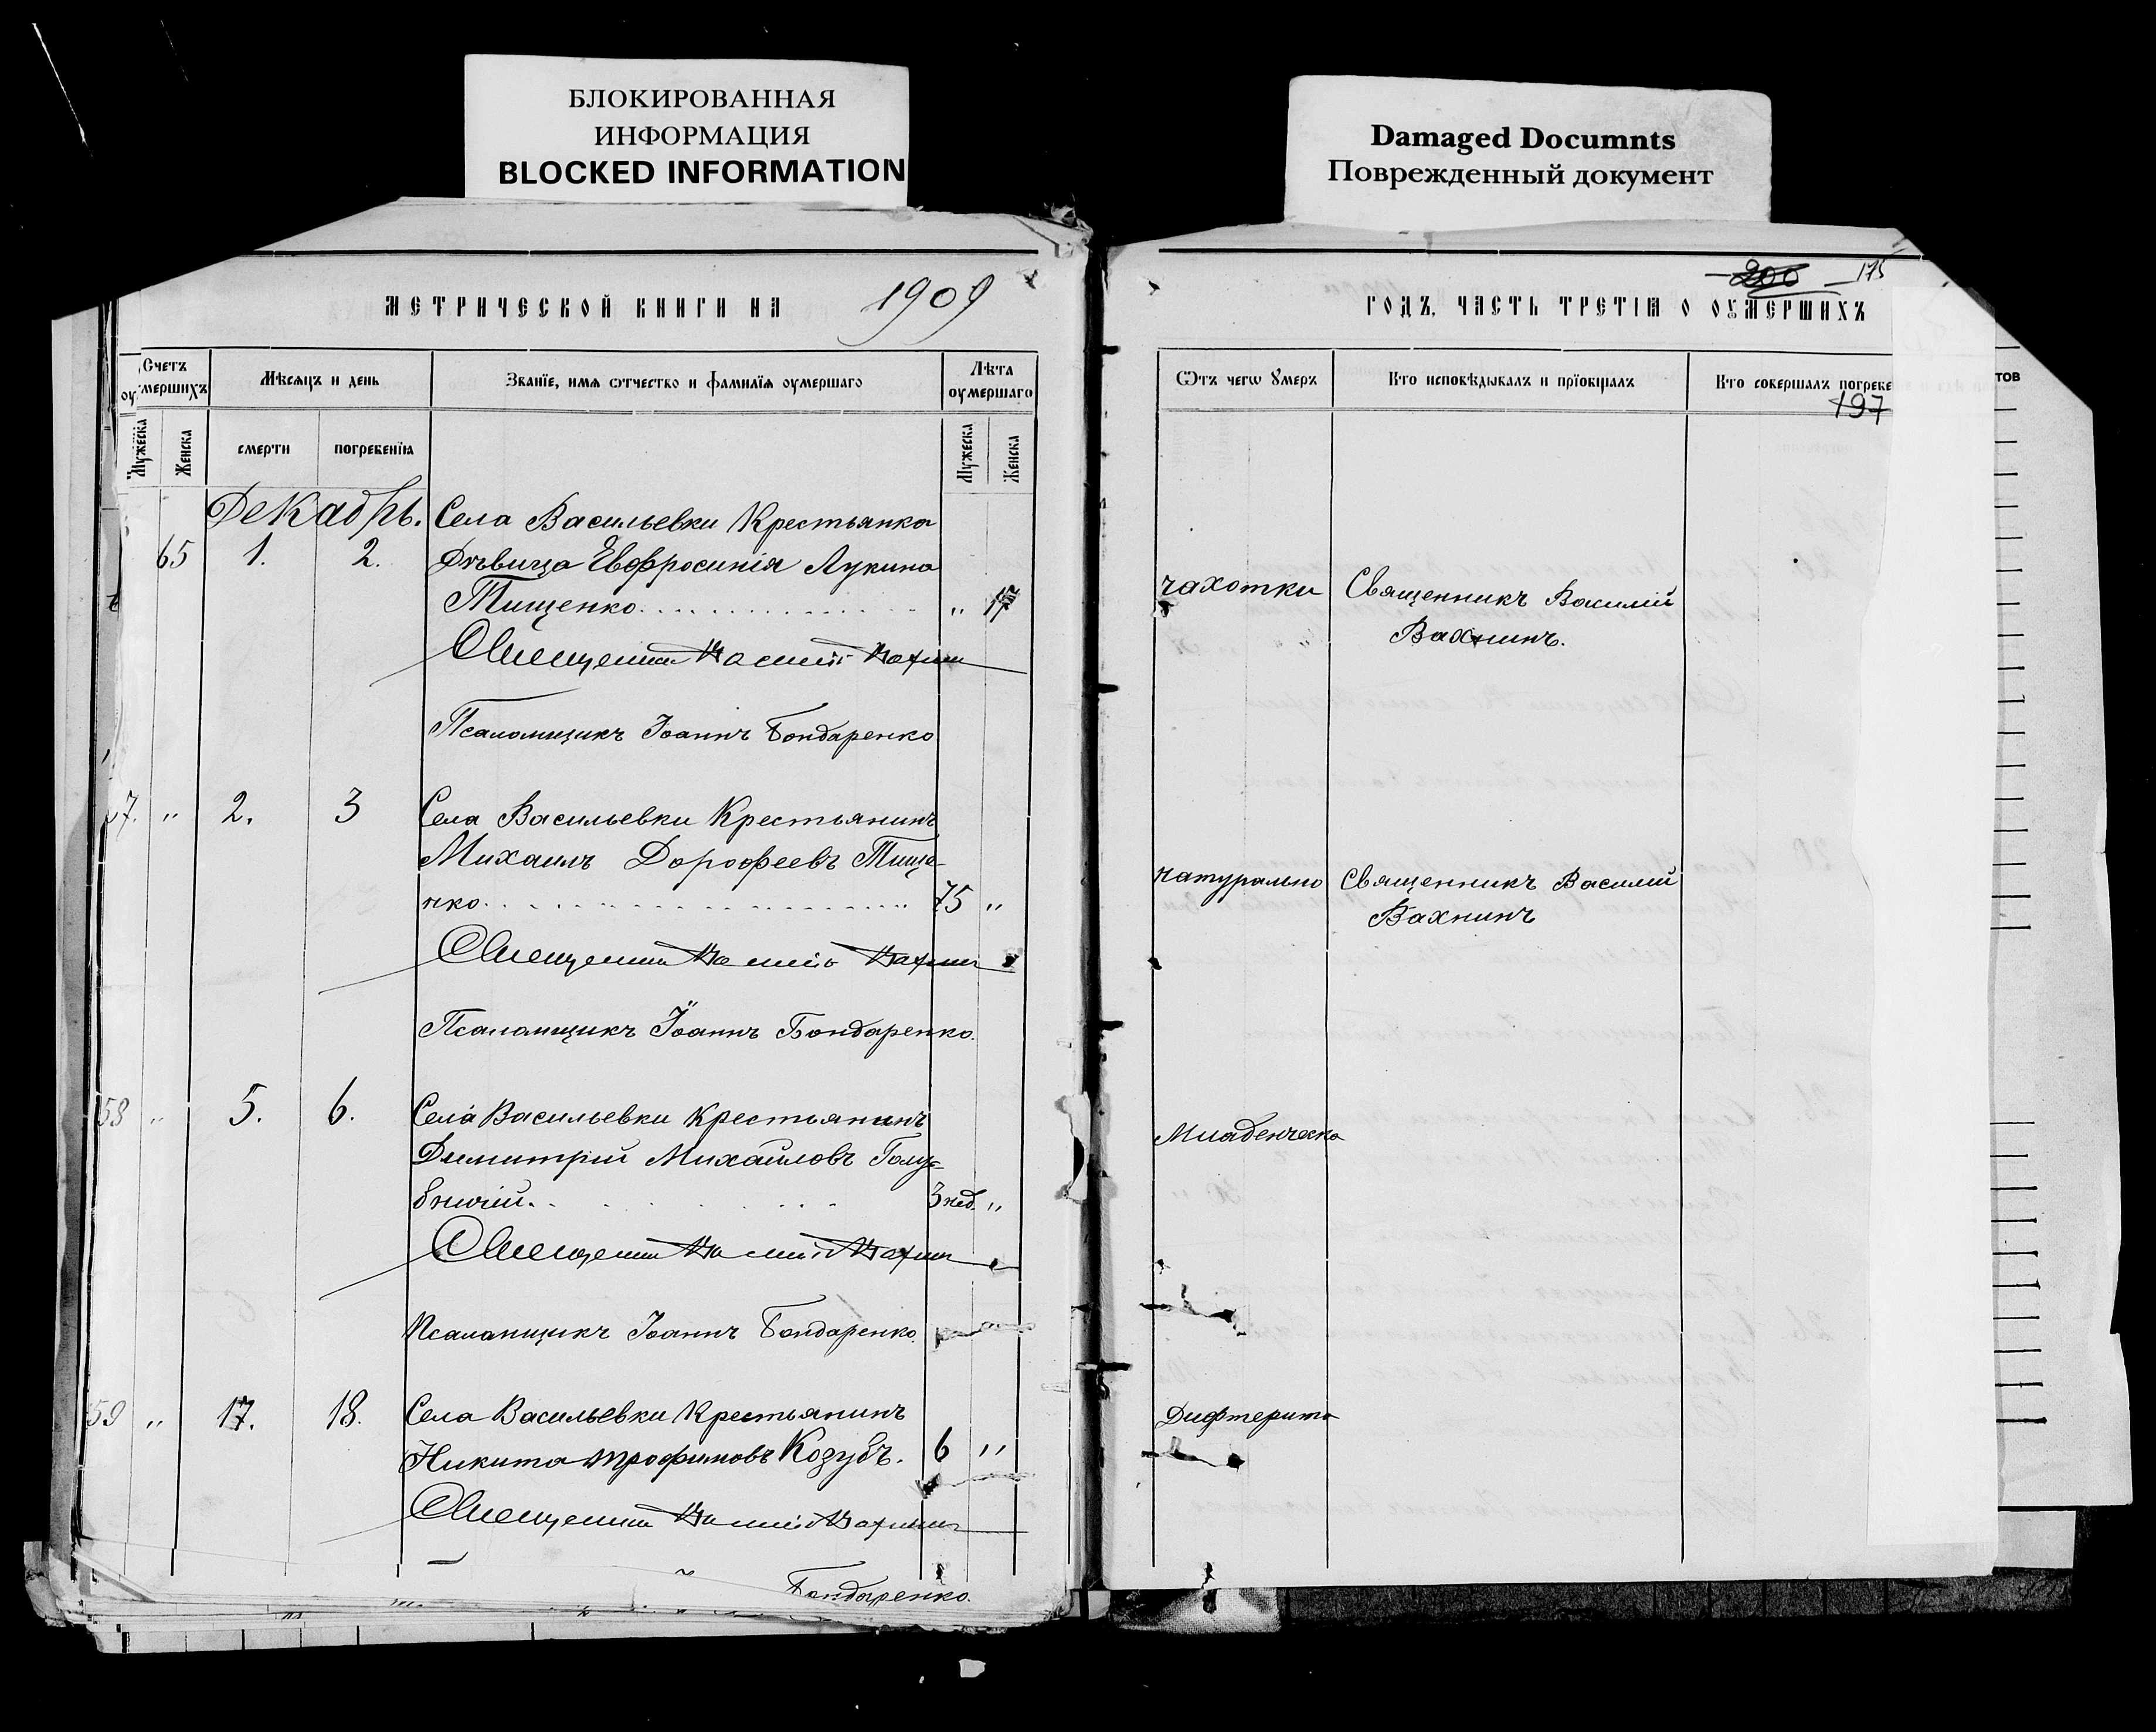 БЛОКИРОВАННАЯ
ИНФОРМАЦИЯ
BLOCKED INFORMATION
Damaged Documnts
Поврежденный документ
МЕТРИЧЕСКОЙ КНИГИ НА 1909
Счетъ оумершихъ
Мѣсяцъ и день
Званїе, имя ѡтчество и фамилїя оумершаго
Лѣта оумершаго
Мужеска
Женска
смерти
погребенїя
Мужеска
Женска
Декабрь. Села Васильевки Крестьянка
65 1. 2. Дѣвица Евфросинія Лукина
Тищенко „ 17
Священникъ Василій Вахнинъ
Псаломщикъ Іоаннъ Бондаренко
57. „ 2. 3 Села Васильевки Крестьянинъ
Михаилъ Дорофеевъ Тище-
нко 75 „
Священникъ Василій Вахнинъ
Псаломщикъ Іоаннъ Бондаренко.
58 „ 5. 6. Села Васильевки Крестьянинъ
Димитрій Михайловъ Голу-
бничій. 3 нед. „
Священникъ Василій Вахнинъ
Псаломщикъ Іоаннъ Бондаренко.
59 „ 17. 18. Села Васильевки Крестьянинъ
Никита Трофимовъ Козубъ. 6 „
Священникъ Василій Вахнинъ
Бондаренко.
200 175
ГОДЪ, ЧАСТЬ ТРЕТІЯ О ОУМЕРШИХЪ
Ѿтъ чегѡ ꙋмеръ
Кто исповѣдывалъ и прїобщалъ
Кто совершалъ погребе
197
ТОВ
чахотки Священникъ Василій
Вахнинъ.
натурально Священникъ Василій
Вахнинъ
Младенческа
Дифтерита